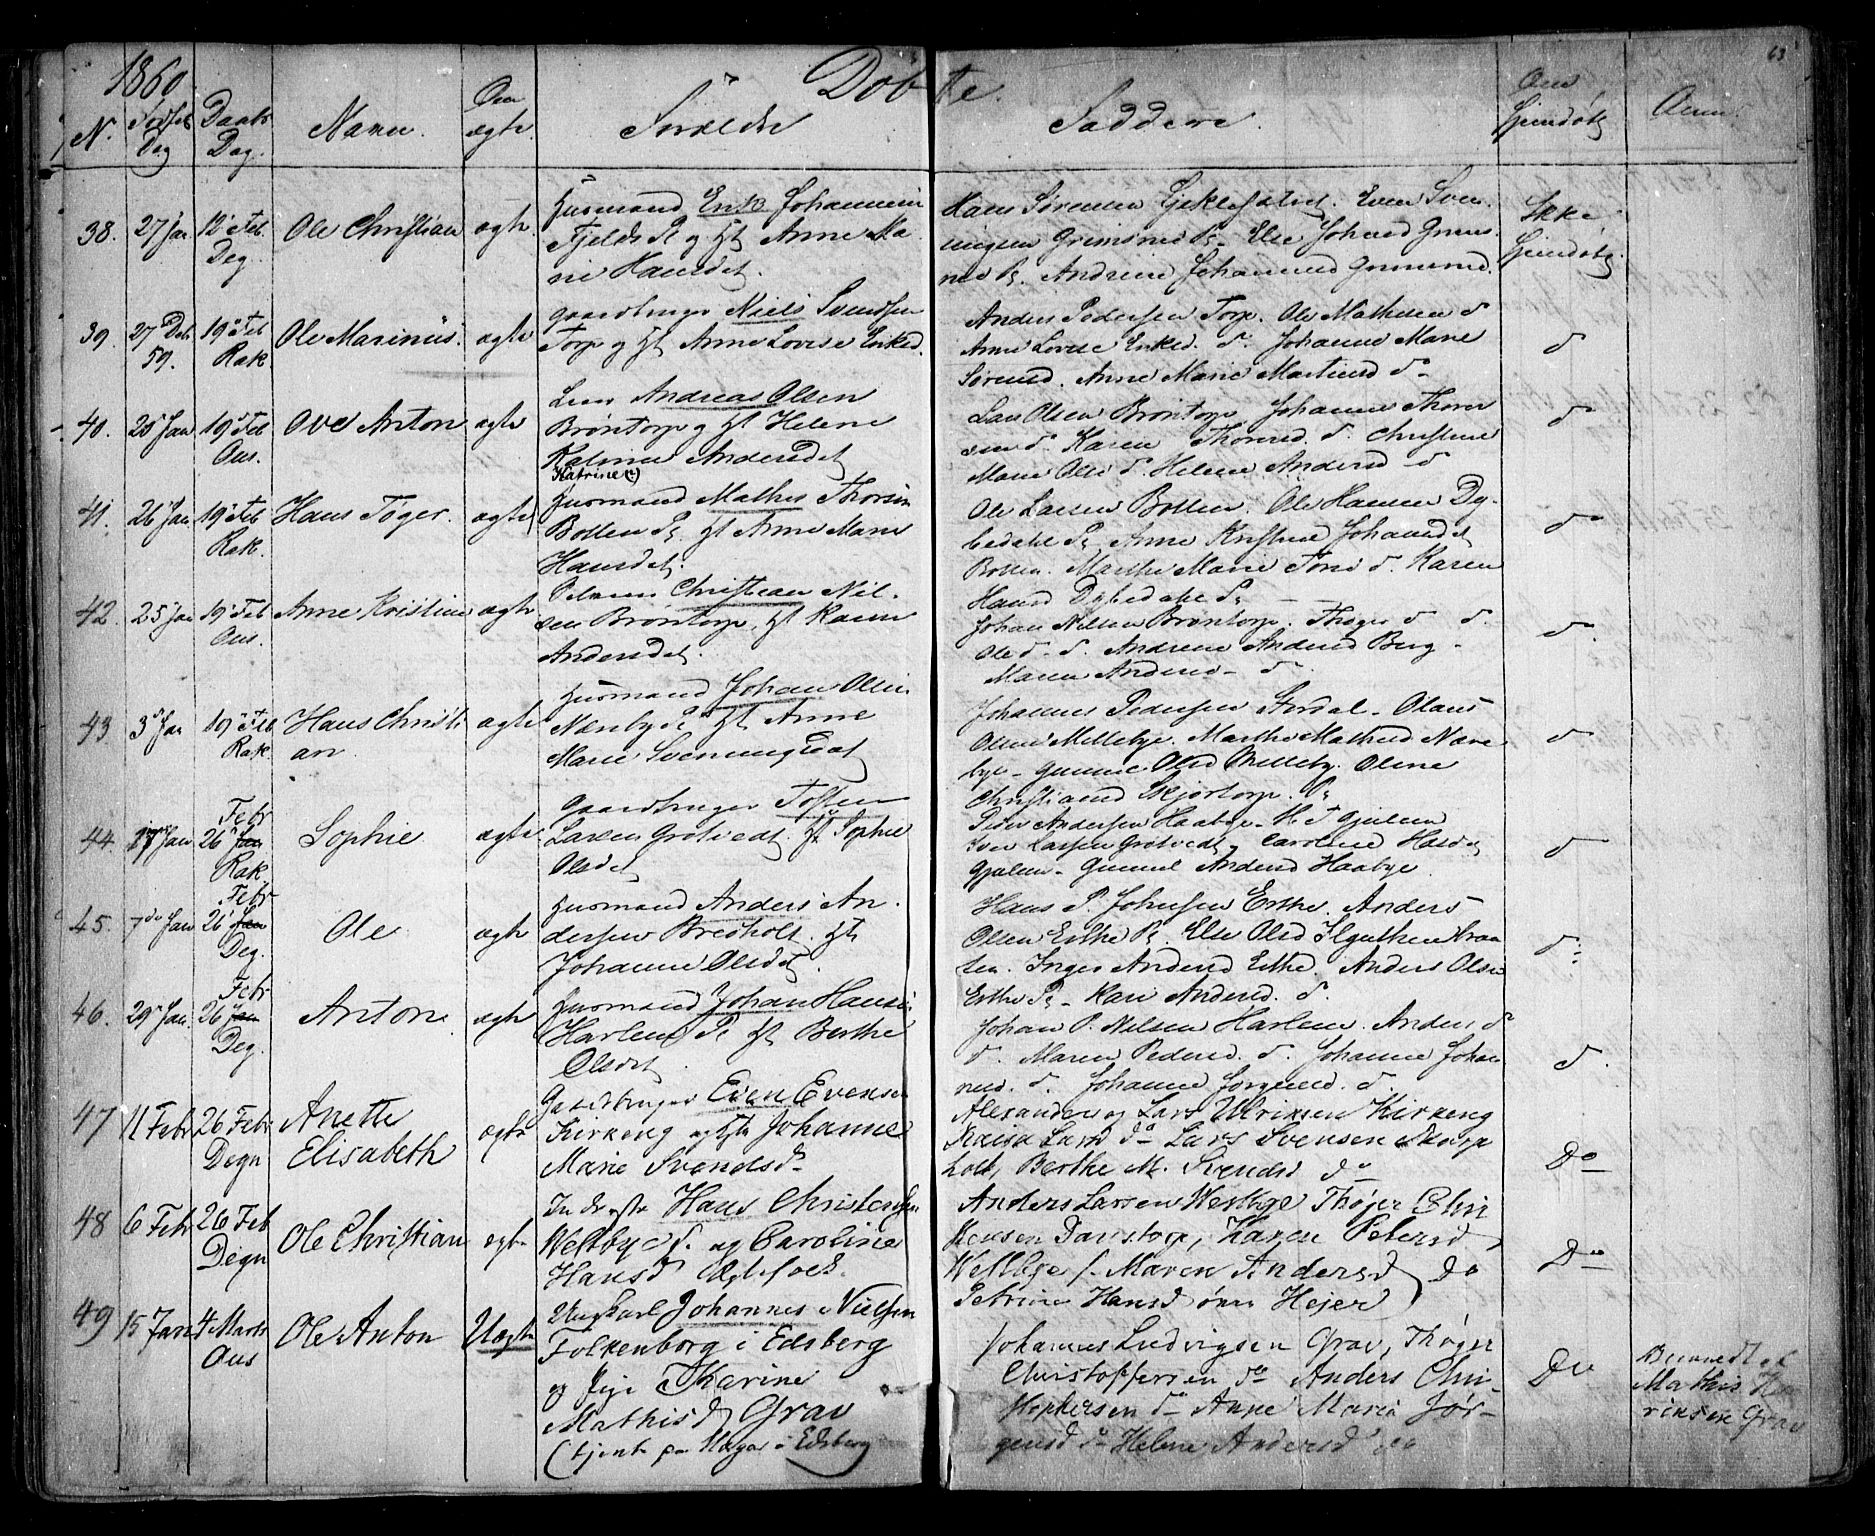 1860 Döbte. 63
N. Fødsels Dag Daabs Dag. Navn. Om ægte Forældre Faddere. Om hjemdøbt Anm.
38. 27 Jan 12te Feb Deg. Ole Christian ægte
Husmand Erik Johannesen
Fjelds Pl og H Anne Ma
rie Hansdat.
Hans Sørensen
ningsen Grimsrud Pl. Else Johansd Grims
rud Pl. Andrine Johannesd Grimsrud.
Ikke hjemdøbt.
39. 27 Dec 59. 19de Feb Rak. Ole Marinius. ægte
Gaardbruger Niels Svendsen
Torp og H Anne Lovise Eriksd.
Anders Pedersen Torp. Ole Mathisen do
Anne Lovise Eriksd. do. Johanne Marie
Sørensd. Anne Marie Martinsd do
do
40. 20 Jan 19de Feb Ous. Ove Anton ægte
Andreas Olsen
Brøntorp og H Helene
Katrine Andersdat
Katrine(?)
Lars Olsen Brøntorp Johannes Thorer
sen do. Karen Thoresd. do. Christine
Marie Olsd do. Helene Andersd do
do
41. 26 Jan 19de Feb Rak. Hans Töger. ægte
Husmand Mathis Thorsen
Botten Pl. H Anne Marie
Hansdat.
Ole Larsen Botten. Ole Hansen Dy
bedahl Pl. Anne Kristine Johansdat
Botten. Marthe Marie Tores do. Karen
Hansd Dybedahl Pl.
do
42. 25 Jan 19de Feb Ous. Anne Kristine ægte
Christian Nil-
sen Brøntorp, H Karen
Andersdat.
Johan Nilsen Brøntorp. Thøger do do.
Ole do. do. Andrene Andersd Berg
Maren Andersd do.
do.
43 3de Jan 19de Feb Rak. Hans Christi an. ægte
Husmand Johan Olsen
Næreby Pl H Anne
Marie Svenningsdat
Johannes Pedersen Stordal. Olaus
Olsen Millebye. Marthe Mathisd Nære
bye. Gunnil Olsd Millebye. Oline
Christiansd Skjørtorp. Pl
do
44. 17 Jan Febr 26de Jan Rak. Sophie ægte
Gaardbruger Tosten
Larsen Grötvedt. H Sophie
Olsdat
Peder Andersen Haabye. H. T Gjulem
Iver Larsen Grötvedt. Caroline Hansdat
Gjulem. Gunnil Andersd Haabye.
do
45. 7de Jan Febr 26de Jan Deg. Ole ægte
Husmand Anders An
dersen Bredholt. H
Johanne Olsdat.
Hans P. Johnsen Erthe. Anders
Olsen Erthe Pl. Else Olsd Slguthenbraa
ten. Inger Andersd Erthe. Anders Olsen
Erthe Pl. Kari Andersd. do.
do:
46. 29 Jan. Febr 26 Jan Deg. Anton. ægte
Husmand Johan Hansen
Harlem Pl H Berthe
Olsdat.
Johan P. Nilsen Harlem. Anders do
do. Maren Pedersd. do. Johanne Johan
nesd. do. Johanne Jørgensd. do.
do.
47 11 Febr 26 Febr Degn Anette Elisabeth ægte
Gaardbruger Even Evensen
Kirkeng og H Johanne
Marie Svendsd
Alexander og Lars Ulriksen Kirkeng
Kaisa Larsd do Lars Svensen Skorp
holt, Berthe M. Svendsd do
Do
48 6 Febr 26 Feb Degn Ole Christian ægte
Inderste Hans Christensen
Westbye do. og Caroline
Hansd Ægtefolk.
Anders Larsen Westbye Thøjer Chri
stensen Davstorp, Karen Petersd
Westbye / Maren Andersd do
Petrine Hansd øvre Hejer
Do
49 15 Jan 4 Marts Ous Ole Anton Uægte
Ungkarl Johannes Nielsen
Folkenborg i Edsberg
og Pige Karine
Mathisd Grav
(tjente paa Nægar i Edsberg
Johannes Ludvigsen Grav, Thøger
Christoffersen do Anders Chri
stophersen do Anne Maria Jör-
gensd do Helene Andersd do
Do
Mathis Hen
riksen Grav